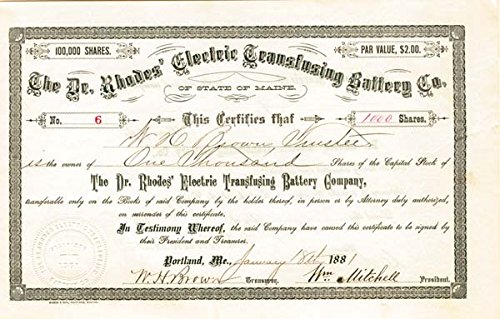 100,000 SHARES.
PAR VALUE, $2.00.
The Dr. Rhodes' Electric Transfusing Battery Co.
OF STATE OF MAINE.
No. 6
This Certifies that
1000 Shares.
W. H. Brown, Trustee
is the owner of One Thousand Shares of the Capital Stock of
The Dr. Rhodes' Electric Transfusing Battery Company,
transferable only on the Books of said Company by the holder thereof, in person or by Attorney duly authorized,
on surrender of this certificate.
In Testimony Whereof, the said Company have caused this certificate to be signed by
their President and Treasurer.
Portland, Me., January 18th 1881
W. H. Brown Treasurer. Wm. Mitchell President.